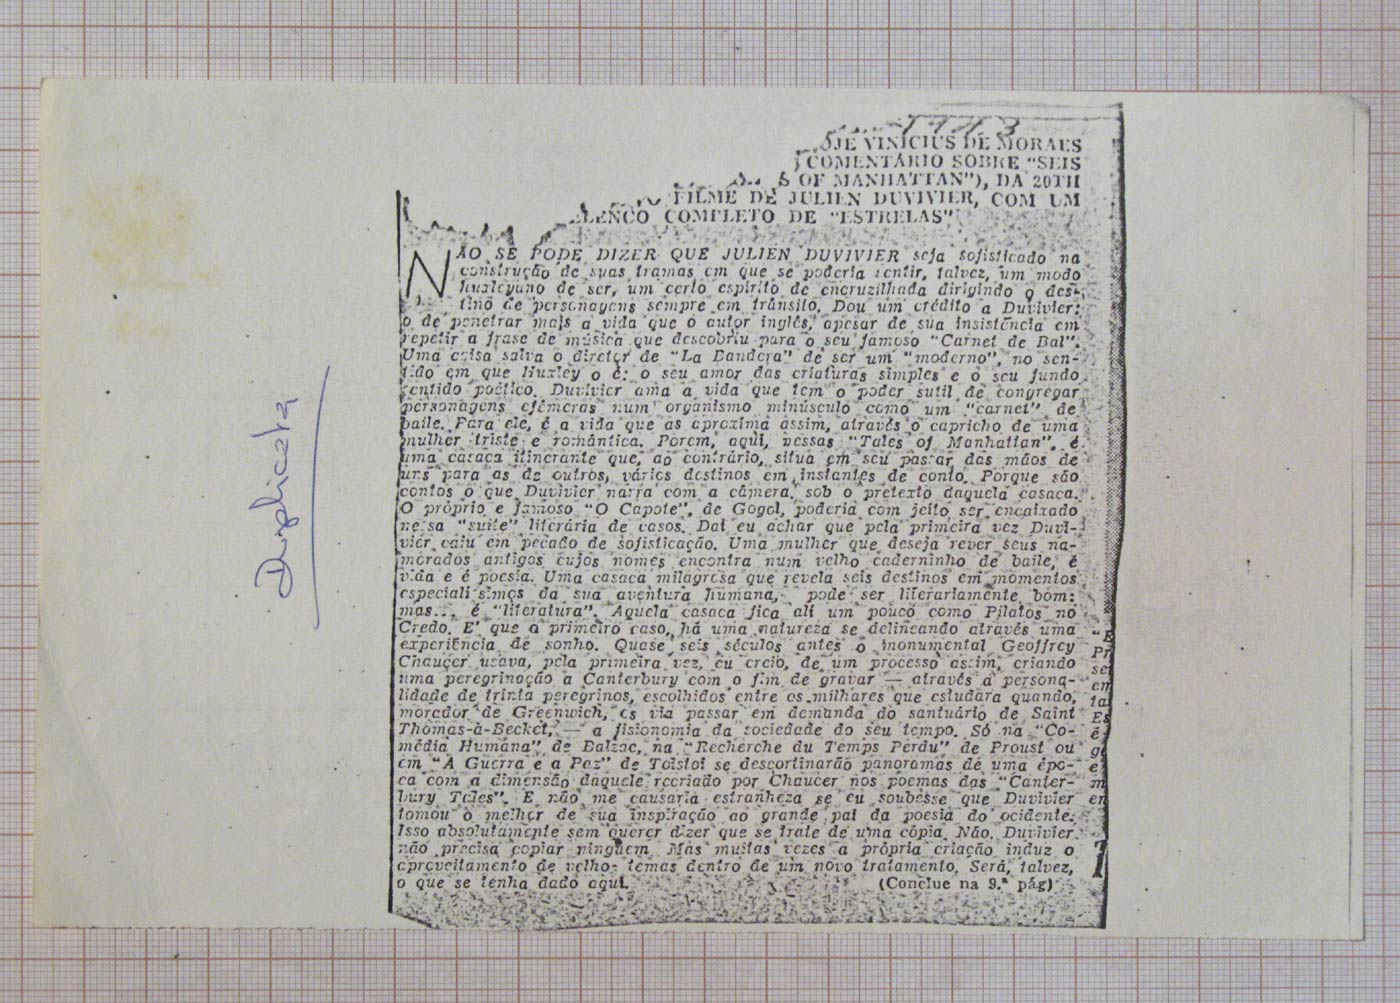 Duplicata
JE VINICIUS DE MORAES
COMENTÁRIO SOBRE "SEIS
OF MANHATTAN"), DA 20TH
FILME DE JULIEN DUVIVIER, COM UM
ELENCO COMPLETO DE "ESTRELAS"
NÃO SE PODE DIZER QUE JULIEN DUVIVIER seja sofisticado na
construção de suas tramas em que se poderia sentir, talvez, um modo
huxleyano de ser, um certo espírito de encruzilhada dirigindo o des-
tino de personagens sempre em trânsito. Dou um crédito a Duvivier:
o de penetrar mais a vida que o autor inglês, apesar de sua insistência em
repetir a frase de música que descobriu para o seu famoso "Carnet de Bal".
Uma coisa salva o diretor de "La Bandera" de ser um "moderno", no sen-
tido em que Huxley o é: o seu amor das criaturas simples e o seu fundo
sentido poético. Duvivier ama a vida que tem o poder sutil de congregar
personagens efêmeras num organismo minúsculo como um "carnet" de
baile. Para ele, é a vida que as aproxima assim, através o capricho de uma
mulher triste e romântica. Porem, aqui, nessas "Tales of Manhattan", é
uma casaca itinerante que, ao contrário, situa em seu passar das mãos de
uns para as de outros, vários destinos em instantes de conto. Porque são
contos o que Duvivier narra com a câmera, sob o pretexto daquela casaca.
O próprio e famoso "O Capote", de Gogol, poderia com jeito ser encaixado
nessa "suite" literária de casos. Daí eu achar que pela primeira vez Duvi-
vier caiu em pecado de sofisticação. Uma mulher que deseja rever seus na-
morados antigos cujos nomes encontra num velho caderninho de baile, é
vida e é poesia. Uma casaca milagrosa que revela seis destinos em momentos
especialíssimos da sua aventura humana, pode ser literariamente bom:
mas... é "literatura". Aquela casaca fica ali um pouco como Pilatos no
Credo. E' que a primeiro caso, há uma natureza se delineando através uma
experiência de sonho. Quase seis séculos antes o monumental Geoffrey
Chaucer usava, pela primeira vez, eu creio, de um processo assim, criando
uma peregrinação a Canterbury com o fim de gravar — através a persona-
lidade de trinta peregrinos, escolhidos entre os milhares que estudara quando,
morador de Greenwich, os via passar em demanda do santuário de Saint
Thomas-à-Becket, — a fisionomia da sociedade do seu tempo. Só na "Co-
média Humana" de Balzac, na "Recherche du Temps Perdu" de Proust ou
em "A Guerra e a Paz" de Tolstoi se descortinarão panoramas de uma épo-
ca com a dimensão daquele recriado por Chaucer nos poemas das "Canter-
bury Tales". E não me causaria estranheza se eu soubesse que Duvivier
tomou o melhor de sua inspiração ao grande pai da poesia do ocidente.
Isso absolutamente sem querer dizer que se trate de uma cópia. Não. Duvivier
não precisa copiar ninguem. Mas muitas vezes a própria criação induz o
aproveitamento de velhos temas dentro de um novo tratamento. Será, talvez,
o que se tenha dado aqui.
(Conclue na 9.ª pág)